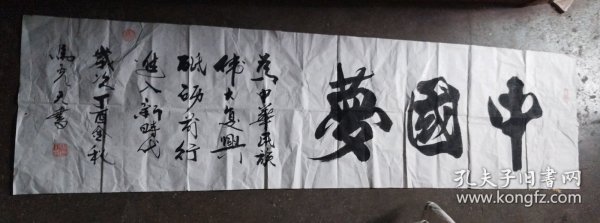 中國夢
為中華民族
偉大復興
砥砺前行
進入新時代
歲次丁酉金秋
馬少文書
孔夫子旧書网
www.kongfz.com